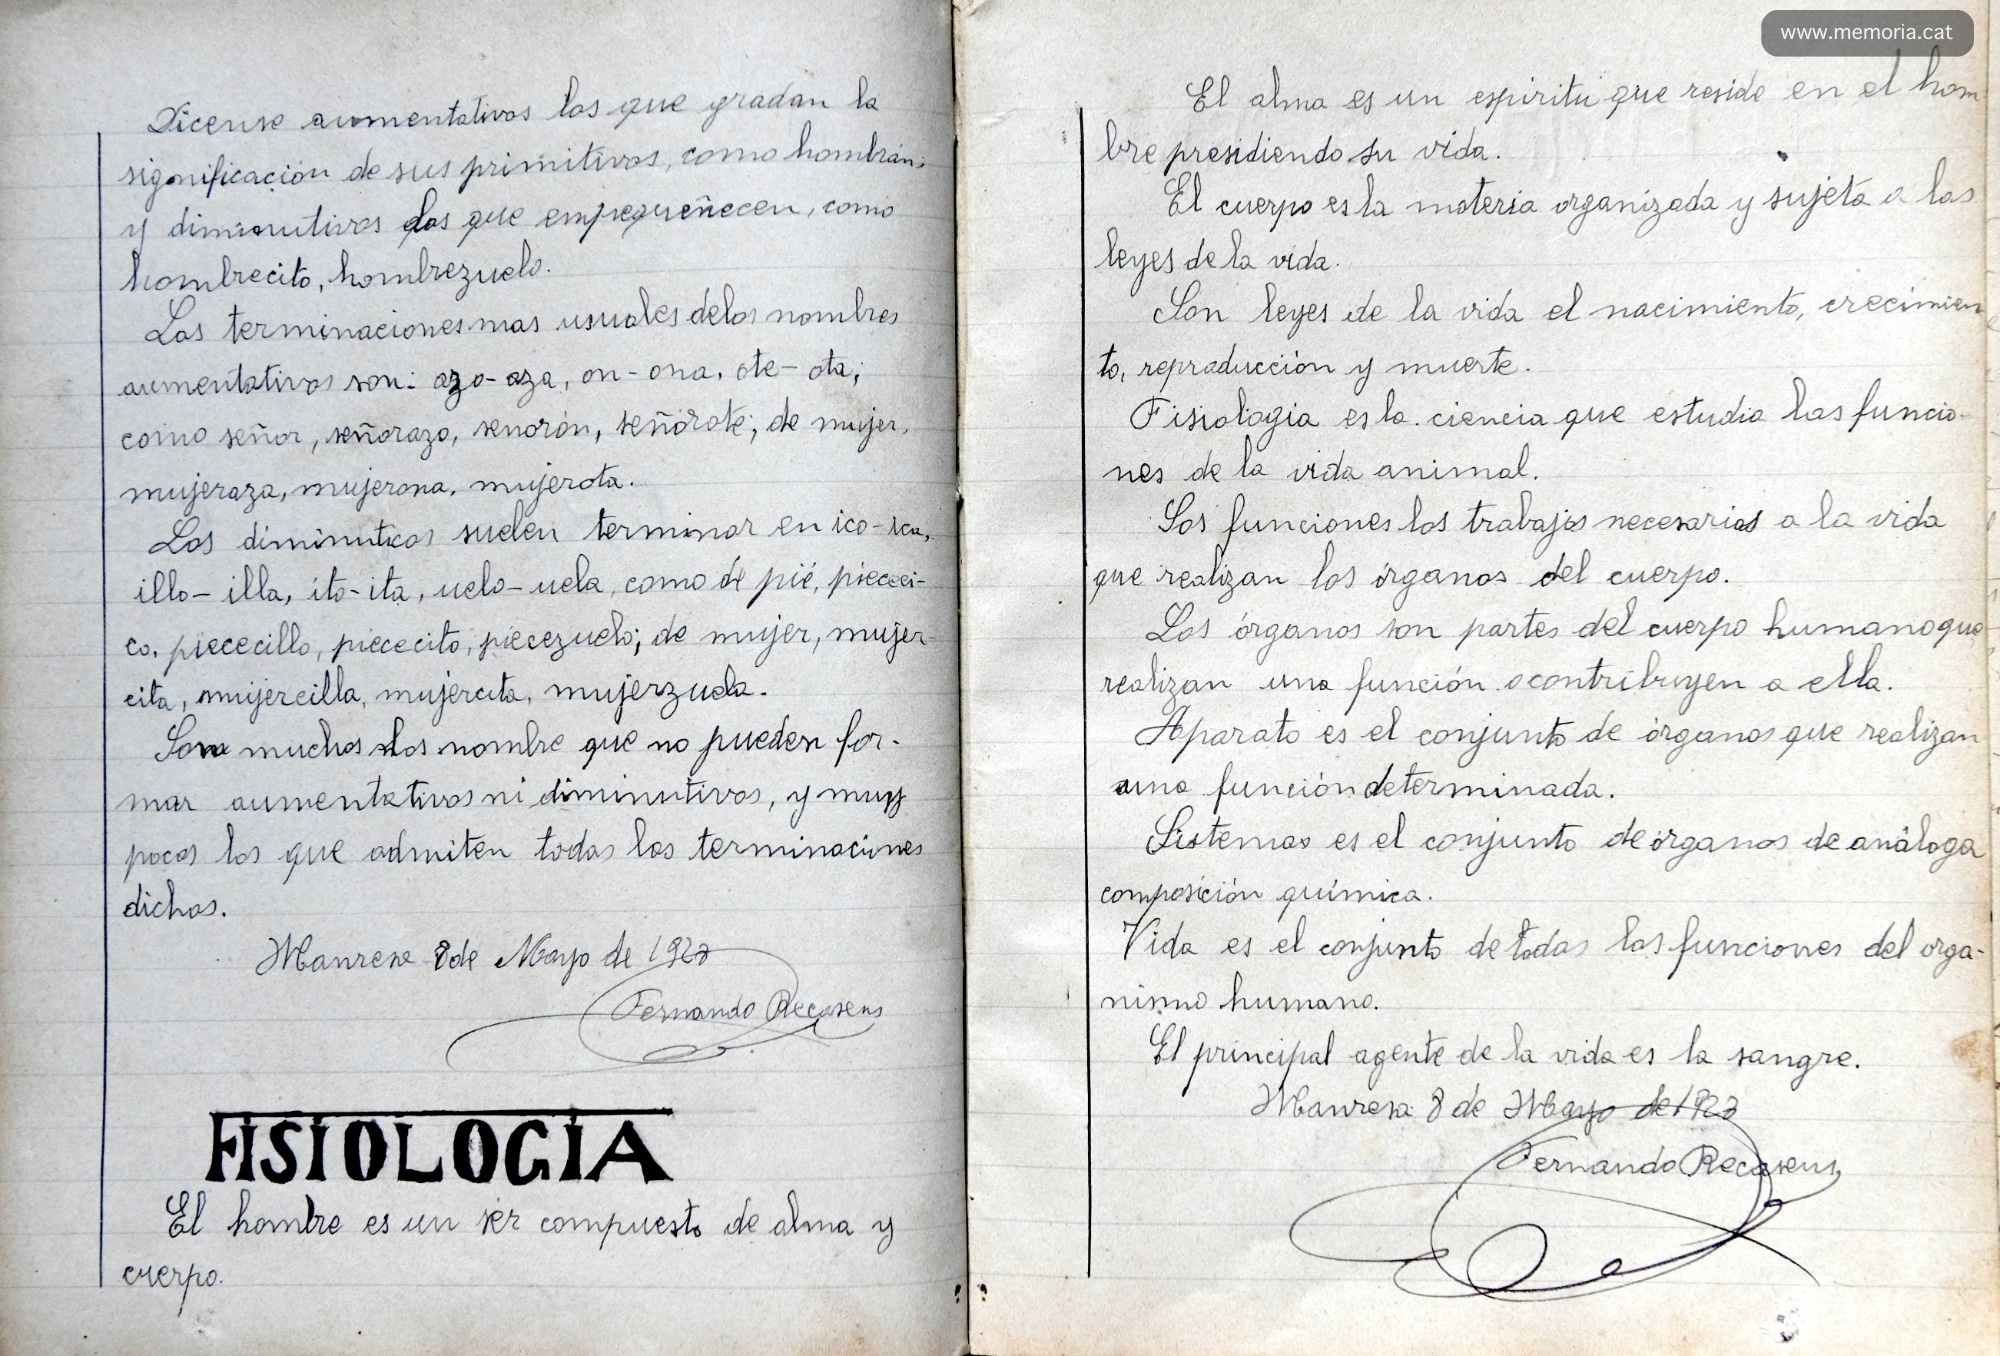 Dicense aumentativos los que gradan la
significación de sus primitivos, como hombrón;
y diminutivos los que empequeñecen, como
hombrecito, hombrezuelo.
Las terminaciones mas usuales de los nombres
aumentativos son: azo-aza, on-ona, ote-ota;
como señor, señorazo, senorón, señorote; de mujer,
mujeraza, mujerona, mujerota.
Los diminuticos suelen terminar en ico-ica,
illo-illa, ito-ita, uelo-uela, como de pié, piececi-
co, piececillo, piececito, piecezuelo; de mujer, mujer
cita, mujercilla, mujercita, mujerzuela.
Son muchos los nombre que no pueden for-
mar aumentativos ni diminutivos, y muy
pocos los que admiten todas las terminaciones
dichas.
Manresa 8 de Mayo de 192
Fernando Recasens
FISIOLOGIA
El hombre es un ser compuesto de alma y
cuerpo.
www.memoria.cat
El alma es un espiritu que reside en el hom
bre presidiendo su vida.
El cuerpo es la materia organizada y sujeta a las
leyes de la vida.
Son leyes de la vida el nacimiento, crecimien
to, reproducción y muerte.
Fisiologia es la ciencia que estudia las funcio-
nes de la vida animal.
Sos funciones los trabajos necesarios a la vida
que realizan los órganos del cuerpo.
Los órganos son partes del cuerpo humano que
realizan una función o contribuyen a ella.
Aparato es el conjunto de órganos que realizan
una función determinada.
Sistemas es el conjunto de órganos de análoga
composición química.
Vida es el conjunto de todas las funciones del orga-
nismo humano.
El principal agente de la vida es la sangre.
Manresa 8 de Mayo de 192
Fernando Recasens